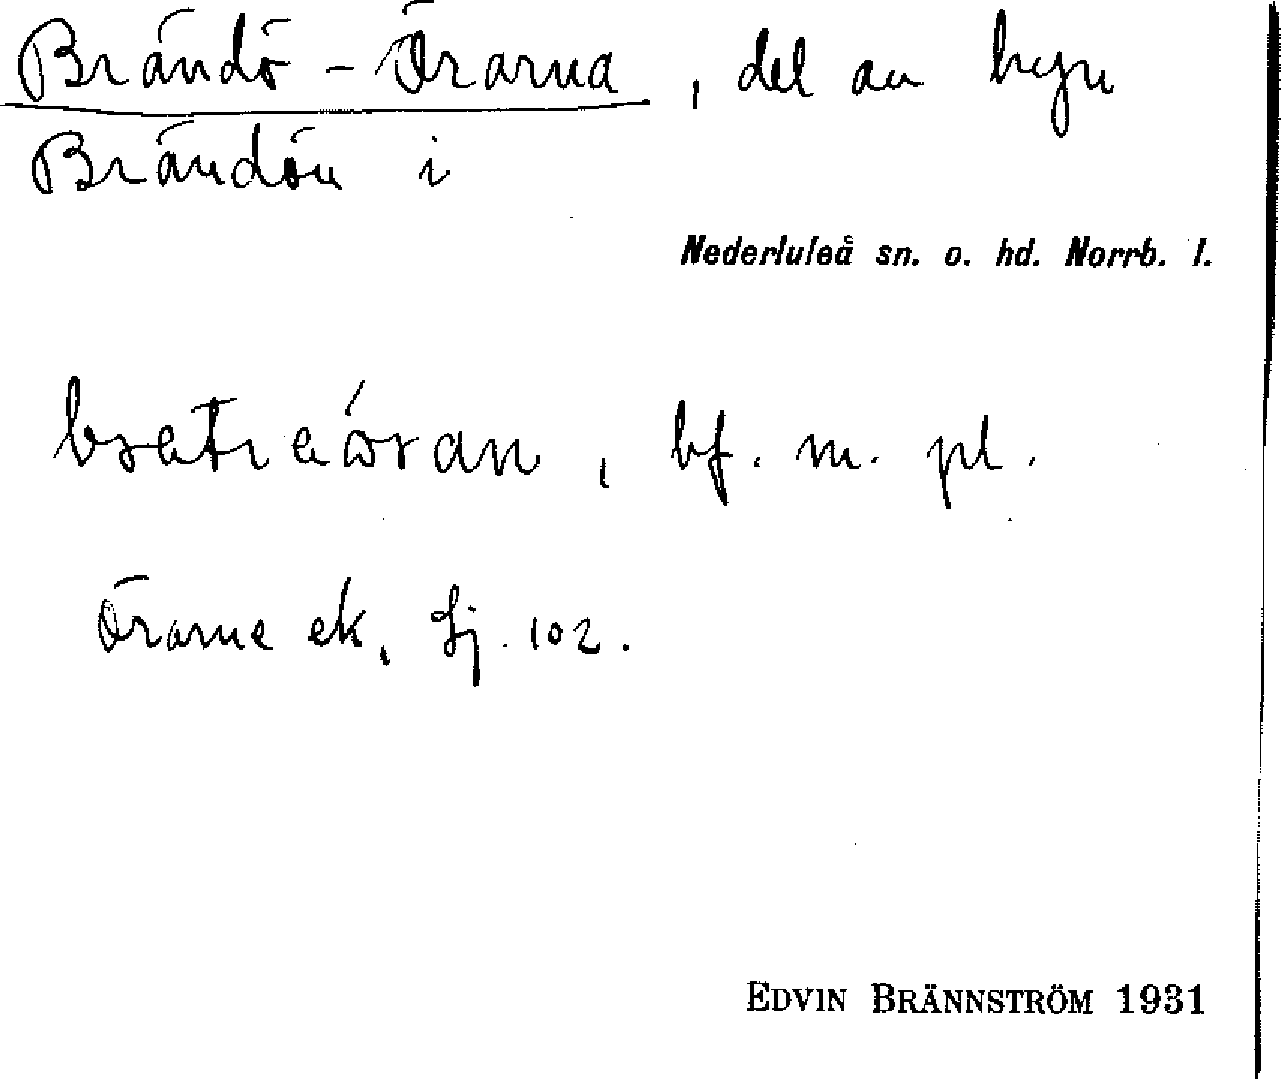 Brändö-Örarna, del av byn
Brändön i
Nederluleå sn. o. hd. Norrb. l.
bf. m. pl.
Örarne ek. bj. 102.
EDVIN BRÄNNSTRÖM 1931